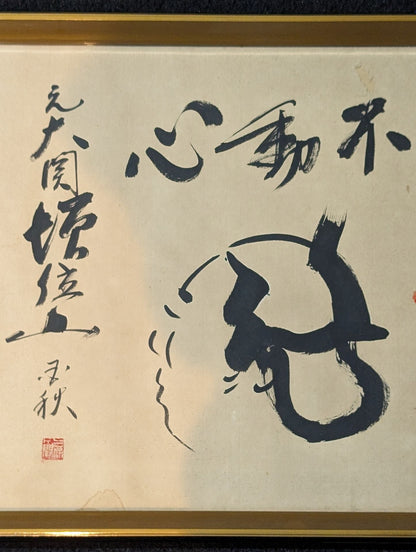 不動心
元大関増位山
秋